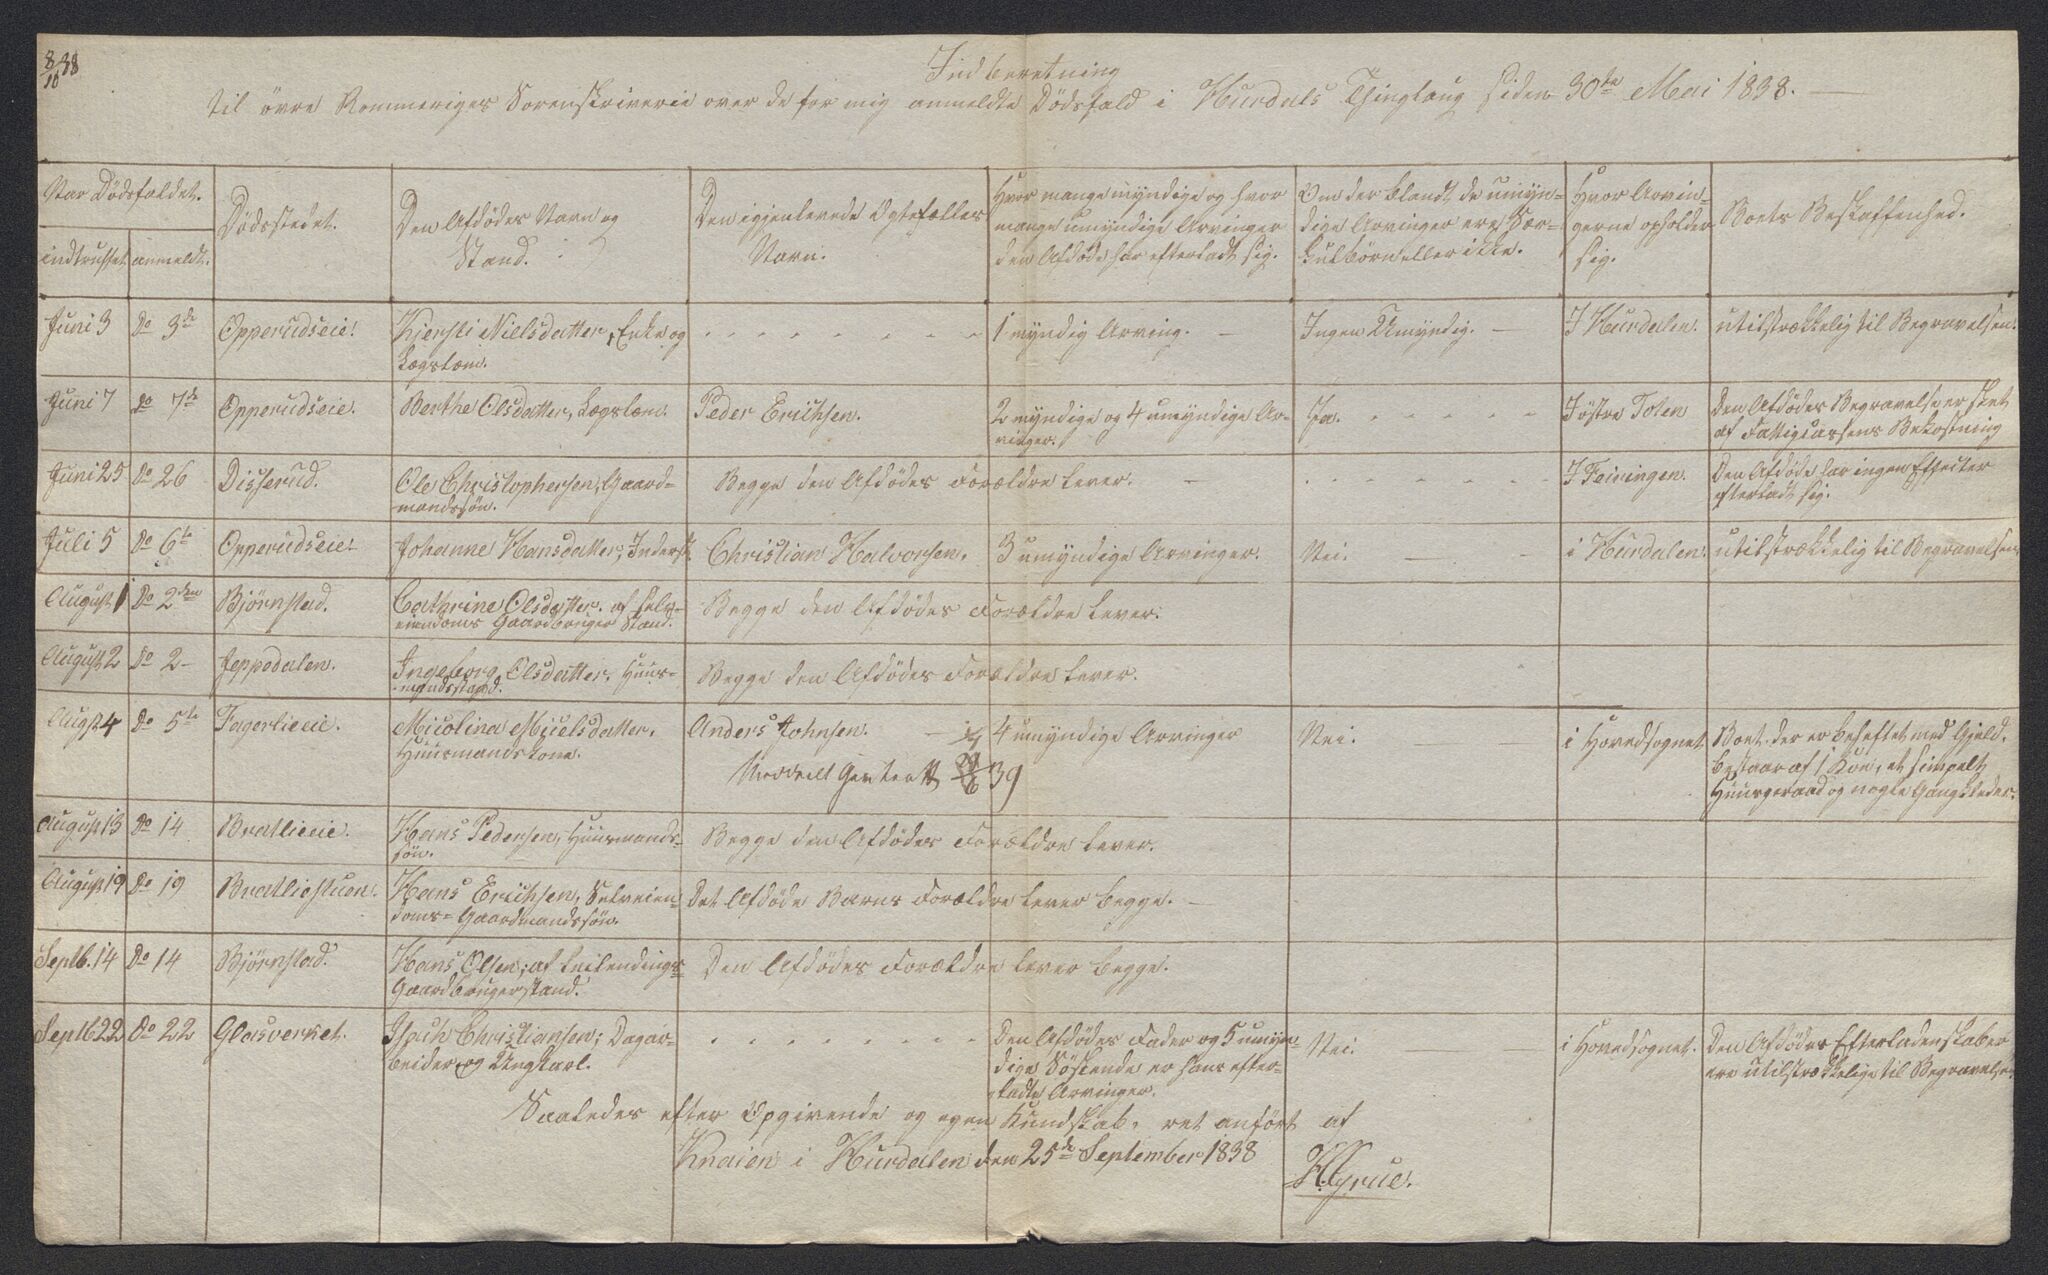 8/10 38
Indberetning
til övre Rommeriges Sorenskriverie over de for mig anmeldte Dödsfald i Hurdals Thinglaug siden 30te Mai 1838.
Naar Dödsfaldet.
indtruffet
anmeldt.
Dödsstedet.
Den Afdödes Navn og
Stand.
Den igjenlevende Ægtefælles
Navn.
Hvor mange myndige og hvor
mange umyndige Arvinger
den Afdøde har efterladt sig.
Om der blandt de umyn-
dige Arvinger ere Sær-
kulbörn eller ikke.
Hvor Arvin-
gerne opholder
sig.
Boets Beskaffenhed.
Juni 3 Do 3de Opperudseie. Kjersti Nielsdatter, Enke og
Lægslem.
1 myndig Arving. Ingen Umyndig. I Hurdalen. utilstrækkelig til Begravelsen.
Juni 7 do 7de Opperudseie. Berthe Olsdatter, Lægslem. Peder Erichsen. 2 myndige og 4 umyndige Ar-
vinger.
Ja. I östre Toten Den Afdödes Begravelse er skeet
af Fattigcassens Bekostning
Juni 25 Do 26 Disserud. Ole Christophersen, Gaard-
mandssön.
Begge den Afdödes Forældre lever. I Feiringen. Den Afdøde har ingen Effecter
efterladt sig.
Juli 5 Do 6te Opperudseie. Johanne Hansdatter, Inderst. Christian Halvorsen. 3 umyndige Arvinger. Nei. i Hurdalen. utilstrækkelig til Begravelsen
August 1 Do 2den Bjørnstad. Cathrine Olsdatter. af selv-
eiendoms Gaardbruger Stand.
Begge den Afdödes Forældre lever.
August 2 Do 2 Jeppedalen. Ingeborg Olsdatter. Huus-
mandsstand.
Begge den Afdödes Forældre lever.
Augst 4 Do 5te Fagerlieeie. Nicolina Nielsdatter,
Huusmandskone.
Anders Johnsen. 4 umyndige Arvinger Nei. i Hovedsognet. Boet, der er beheftet med Gjeld.
bestaar af 1 Koe, et simpelt
Huusgeraad og nogle Gangklæder.
39
August 13 Do 14 Bratlieeie. Hans Pedersen, Huusmands-
sön.
Begge den Afdödes Forældre lever.
August 19 Do 19 Bratliestuen. Hans Erichsen, Selveien-
doms- Gaardmandssön.
Det Afdøde Barns Forældre lever begge.
Septb. 14 Do 14 Bjørnstad. Hans Olsen, af Leilendings-
Gaardbrugerstand.
Den Afdödes Forældre lever begge.
Septb 22 Do 22 Glasverket. Isach Christiansen, Dagar-
beider og Ungkarl.
Den Afdödes Fader og 5 umyn-
dige Söskende er hans efter-
ladte Arvinger.
Nei. i Hovedsognet. Den Afdödes Efterladenskaber
ere utilstrækkelige til Begravelsen
Saaledes efter Opgivende og egen Kundskab, ret anfört af
Knaien i Hurdalen den 25de September 1838
H. Grue.